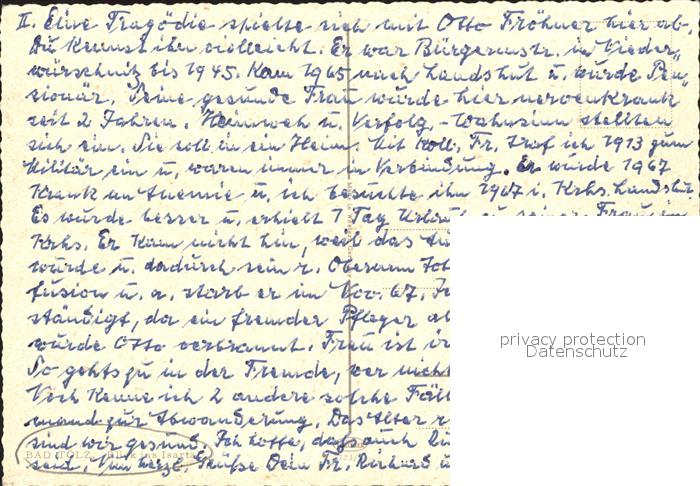 II. Eine Tragödie spielte sich mit Otto Fröhner hier ab.
Du kennst ihn vielleicht. Er war Bürgermstr. in Nieder„
würschnitz bis 1945. Kam 1965 nach Landshut u. wurde Pen„
sionär. Seine gesunde Frau wurde hier nervenkrank
seit 2 Jahren. Heimweh u. Verfolg.-Wahnsinn stellten
sich ein. Sie soll in ein Heim. Mit Koll. Fr. traf ich 1913 zum
Militär ein u. waren immer in Verbindung. Er wurde 1967
krank an Anemie u. ich besuchte ihn 1967 i. Krhs. Landshut
Es wurde besser u. erhielt 7 Tag Urlaub zu seiner Frau
Krhs. Er kam nicht hin, weil das
würde u. dadurch sein r. Oberarm
fusion u. a. starb er im Nov. 67.
ständigt, da ein fremder Pfleger
wurde Otto verbrannt. Frau ist
So gehts zu in der Fremde, wer nicht
Noch kenne ich 2 andere solche
mand zur Abwanderung. Das Alter
sind wir gesund. Ich hoffe, dass auch
seid. Nun herzl. Grüße Dein Fr. Richard
BAD TÖLZ, Blick ins Isartal
privacy protection
Datenschutz